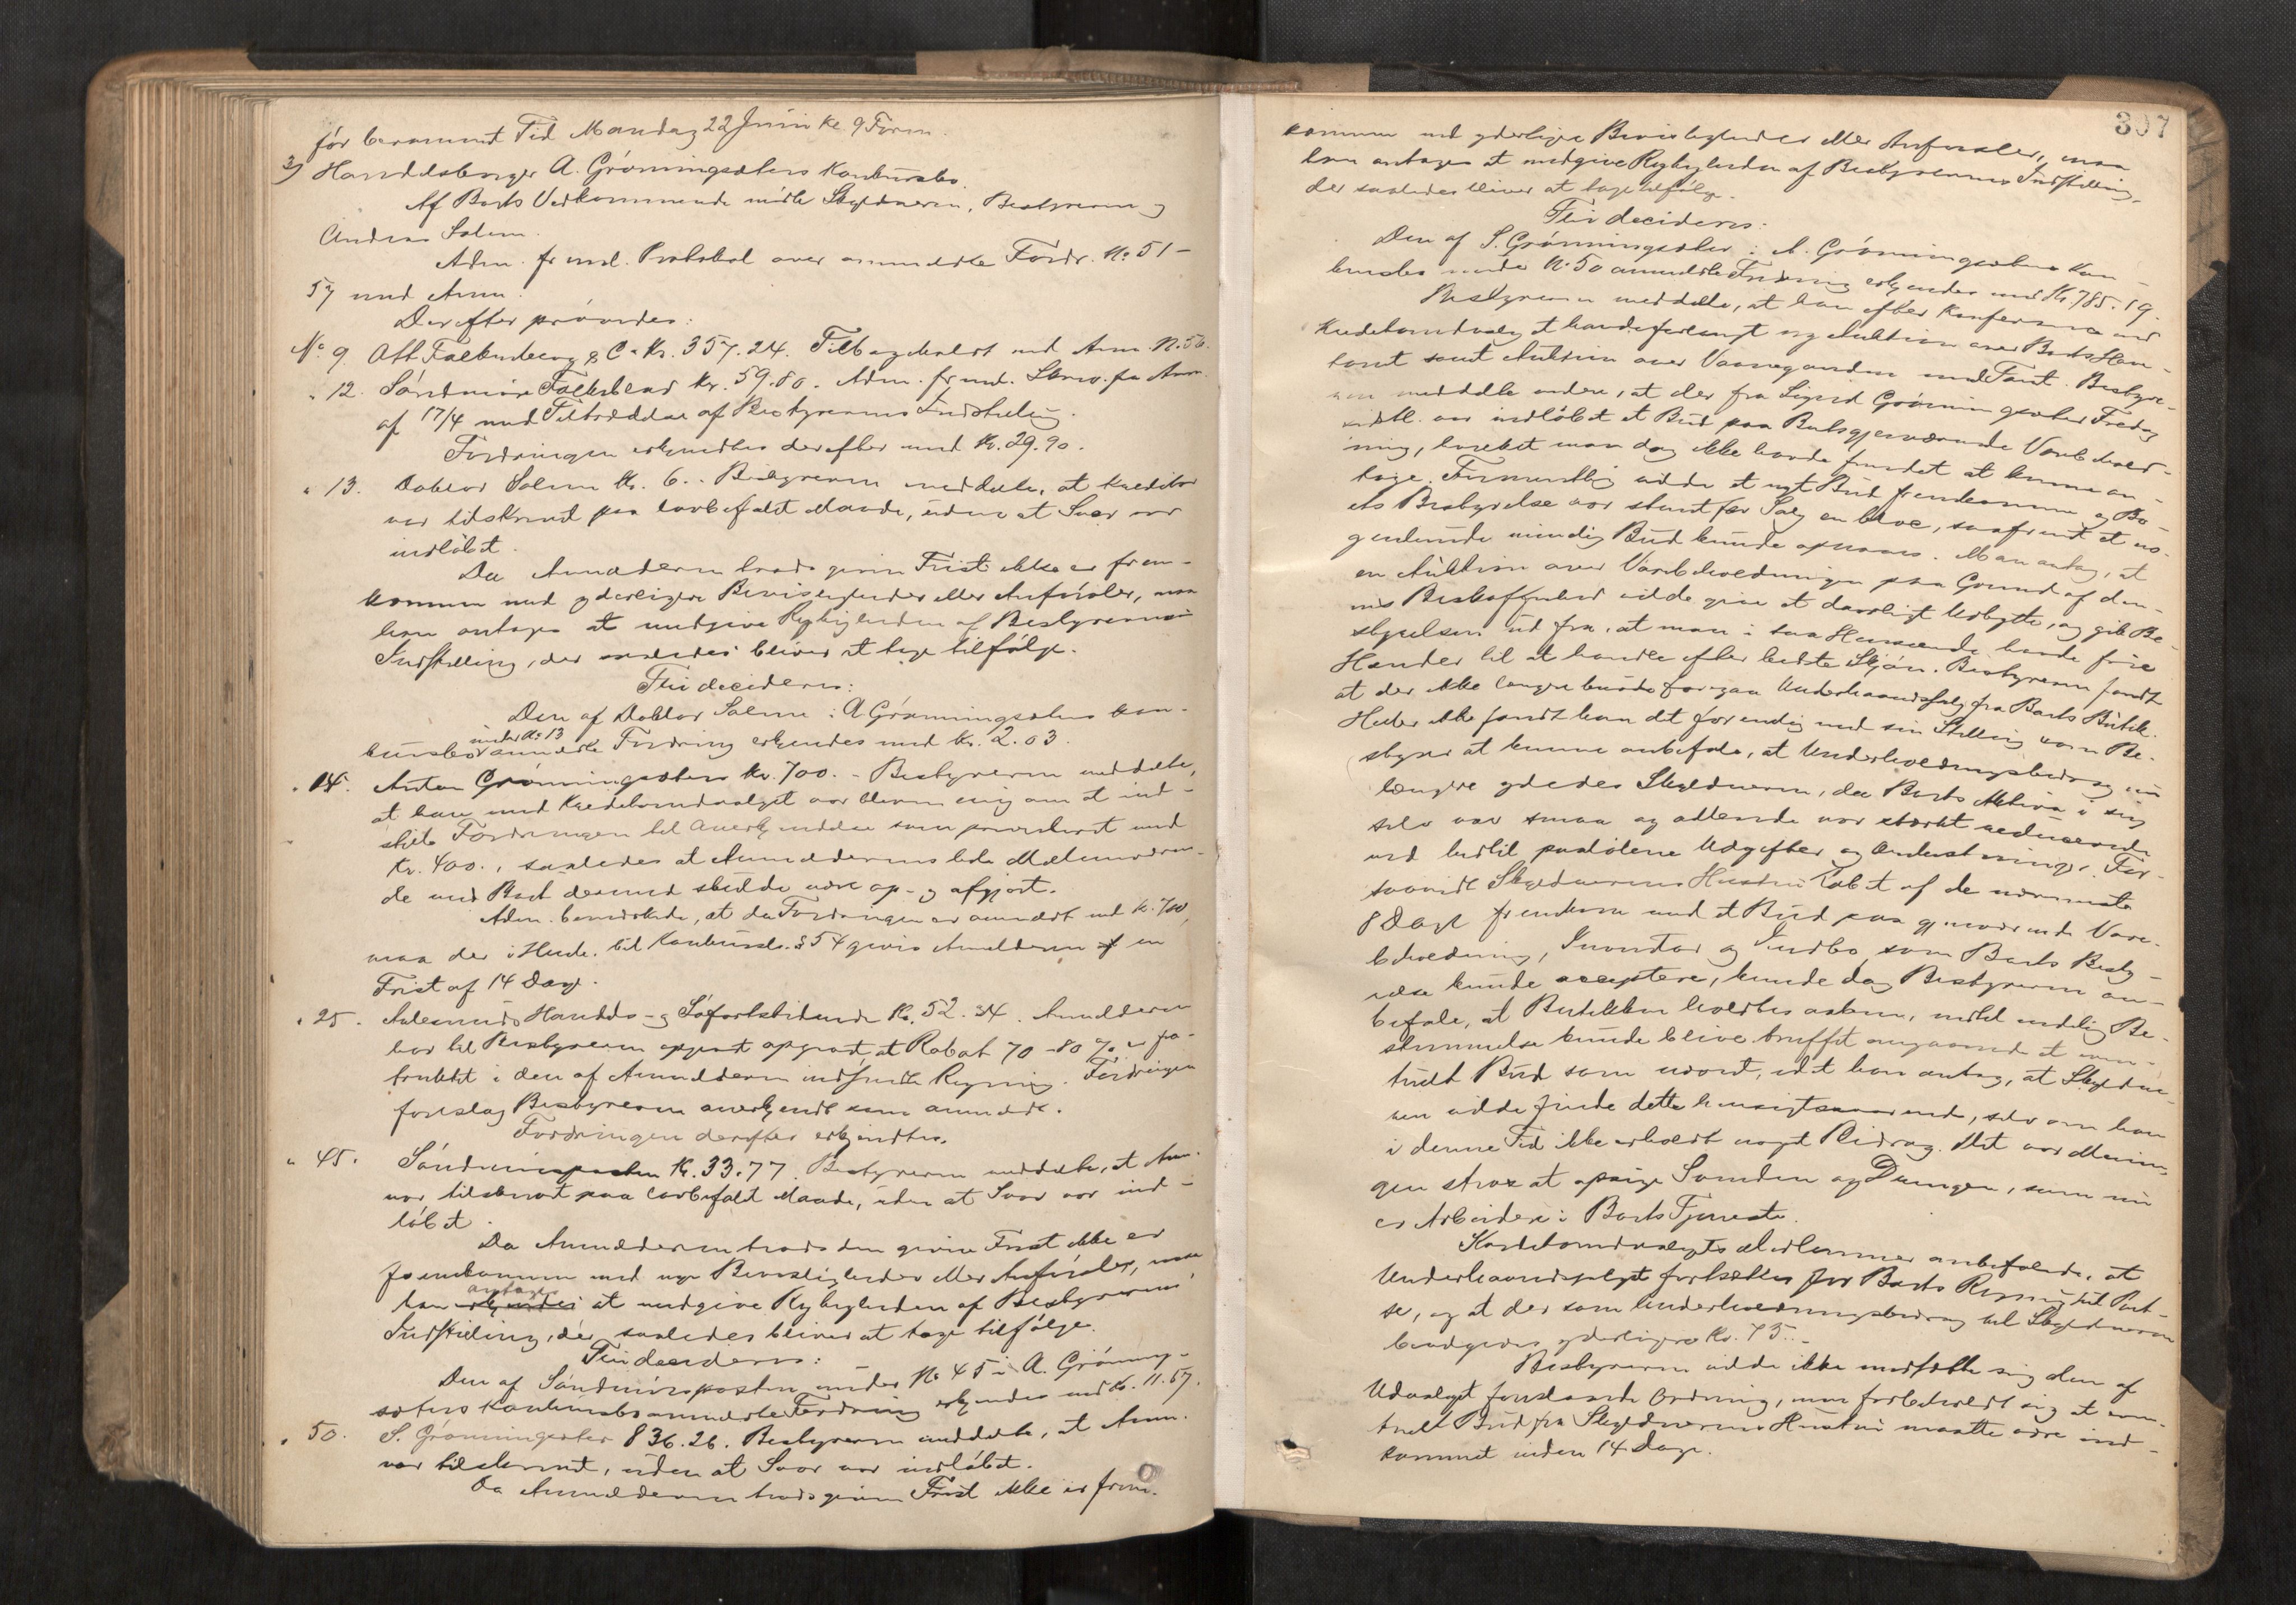 før berammet Tid Mandag 22 Juni kl. 9 Form.
3) Handelsborger A. Grønningsæters Konkursbo.
Af Boets Vedkommende mødte Skyldneren, Bestyreren og
Andreas Solem.
Adm. freml. Protokol over anmeldte Fordr. No 51-
57 med Anm.
Derefter prøvedes:
No 9. Ths Falkenberg & Co Kr. 357.24. Tilbagekaldt ved Anm. No 56.
" 12. Søndmøre Folkeblad Kr. 59.80. Adm. freml. Skriv. fra Anm.
af 17/4 med Tiltrædelse af Bestyrerens Indstilling.
Fordringen erkjendtes derefter med Kr. 29.90.
" 13. Doktor Solem Kr. 6.- Bestyreren meddelte, at Kreditor
var tilskrevet paa lovbefalet Maade, uden at Svar var
indløbet.
Da Anmelderen trods given Frist ikke er frem-
kommen med yderligere Bevisligheder eller Anførsler, maa
han antages at medgive Rigtigheden af Bestyrerens
Indstilling, der saaledes bliver at tage tilfølge.
Thi decideres:
Den af Doktor Solem i A Grønningsæters Kon-
kursbo under No 13 anmeldte Fordring erkjendes med Kr. 2.03.
" 14. Anton Grønningsæters Kr. 700.- Bestyreren meddelte,
at han med Kreditorudvalget var bleven enig om at ind-
stille Fordringen til Anerkjendelse som privilegeret med
Kr. 400., saaledes at Anmelderens hele Mellemværen-
de med Boet dermed skulde være op- og afgjort.
Adm. bemærkede, at da Fordringen er anmeldt med Kr. 700,
maa der i Henh. til Konkursl. § 54 gives Anmelderen en
Frist af 14 Dage.
" 25. Aalesunds Handels- og Søfartstidende Kr. 52.34. Anmelderen
har til Bestyreren opgivet, at Rabat 70-80 % er fra-
trukket i den af Anmelderen indsendte Regning. Fordringen
foreslog Bestyreren anerkjendt som anmeldt.
Fordringen derefter erkjendtes.
" 45. Søndmørsposten Kr. 33.77. Bestyreren meddelte, at Anm.
var tilskrevet paa lovbefalet Maade, uden at Svar var ind-
løbet.
Da Anmelderen trods den givne Frist ikke er
fremkommen med nye Bevisligheder eller Anførsler, maa
han antages at medgive Rigtigheden af Bestyrerens
Indstilling, der saaledes bliver at tage tilfølge.
Thi decideres:
Den af Søndmørsposten under No 45 i A. Grønning-
sæters Konkursbo anmeldte Fordring erkjendes med Kr. 11.67.
" 50. S. Grønningsæter 836.26. Bestyreren meddelte, at Anm.
var tilskrevet, uden at Svar var indløbet.
Da Anmelderen trods given Frist ikke er frem-
307
kommen med yderligere Bevisligheder eller Anførsler, maa
han antages at medgive Rigtigheden af Bestyrerens Indstilling,
der saaledes bliver at tage tilfølge.
Thi decideres:
Den af S. Grønningsæter i A. Grønningsæters Kon-
kursbo under No 50 anmeldte Fordring erkjendes med Kr. 785.19.
Bestyreren meddelte, at han efter Konferance med
Kreditorudvalget havde forlangt ny Auktion over Boets Hus-
tomt samt Auktion over Vaaningsgaarden med Tomt. Bestyre-
ren meddelte videre, at der fra Sigurd Grønningsæter Fredag
var indløbet et Bud paa Butiksgjenværende Varebehold-
ning, hvilket man dog ikke havde fundet at kunne an-
tage. Formentlig vilde et nyt Bud fremkomme og Bo-
ets Bestyrelse var stemt for Salg en bloc, saafremt et no-
genlunde rimelig Bud kunde opnaaes. Man antog, at
en Auktion over Varebeholdningen paa Grund af den-
nes Beskaffenhed vilde give et daarligt Udbytte, og gik Be-
styrelsen ud fra, at man i saa Henseende havde frie
Hænder til at handle efter bedste Skjøn. Bestyreren fandt
at der ikke længere burde foregaa Underhaandssalg fra Boets Butik.
Heller ikke fandt han det forenelig med sin Stilling som Be-
styrer at kunne anbefale, at Underholdningsbidrag nu
længere ydedes Skyldneren, da Boets Aktiva i sig
selv var smaa og allerede var stærkt reducerede
ved hidtil paaløbne Udgifter og Omkostninger. For-
saavidt Skyldnerens Hustru i Løbet af de nærmeste
8 Dage fremkom med et Bud paa gjenværende Vare-
beholdning, Inventar og Indbo som Boets Besty-
relse kunde acceptere, kunde dog Bestyreren an-
befale, at Butikken holdtes aaben, indtil endelig Be-
stemmelse kunde blive truffet angaaende et even-
tuelt Bud som nævnt, idet han antog, at Skyldne-
ren vilde finde dette hensigtssvarende, selv om han
i denne Tid ikke erholdt noget Bidrag. Det var Menin-
gen strax at opsige Svenden og Drengen, som nu
er Arbeidere i Boets Tjeneste.
Kreditorudvalgets Medlemmer anbefalede, at
Underhaandssalget fortsættes for Boets Regning til Paat-
se, og at der som Underholdningsbidrag til Skyldneren
bevilgedes yderligere Kr. 75.-
Bestyreren vilde ikke modsætte sig den af
Udvalget foreslaaede Ordning, men forbeholdt sig at even-
tuelt Bud fra Skyldnerens Hustru maatte være ind-
kommet inden 14 Dage.